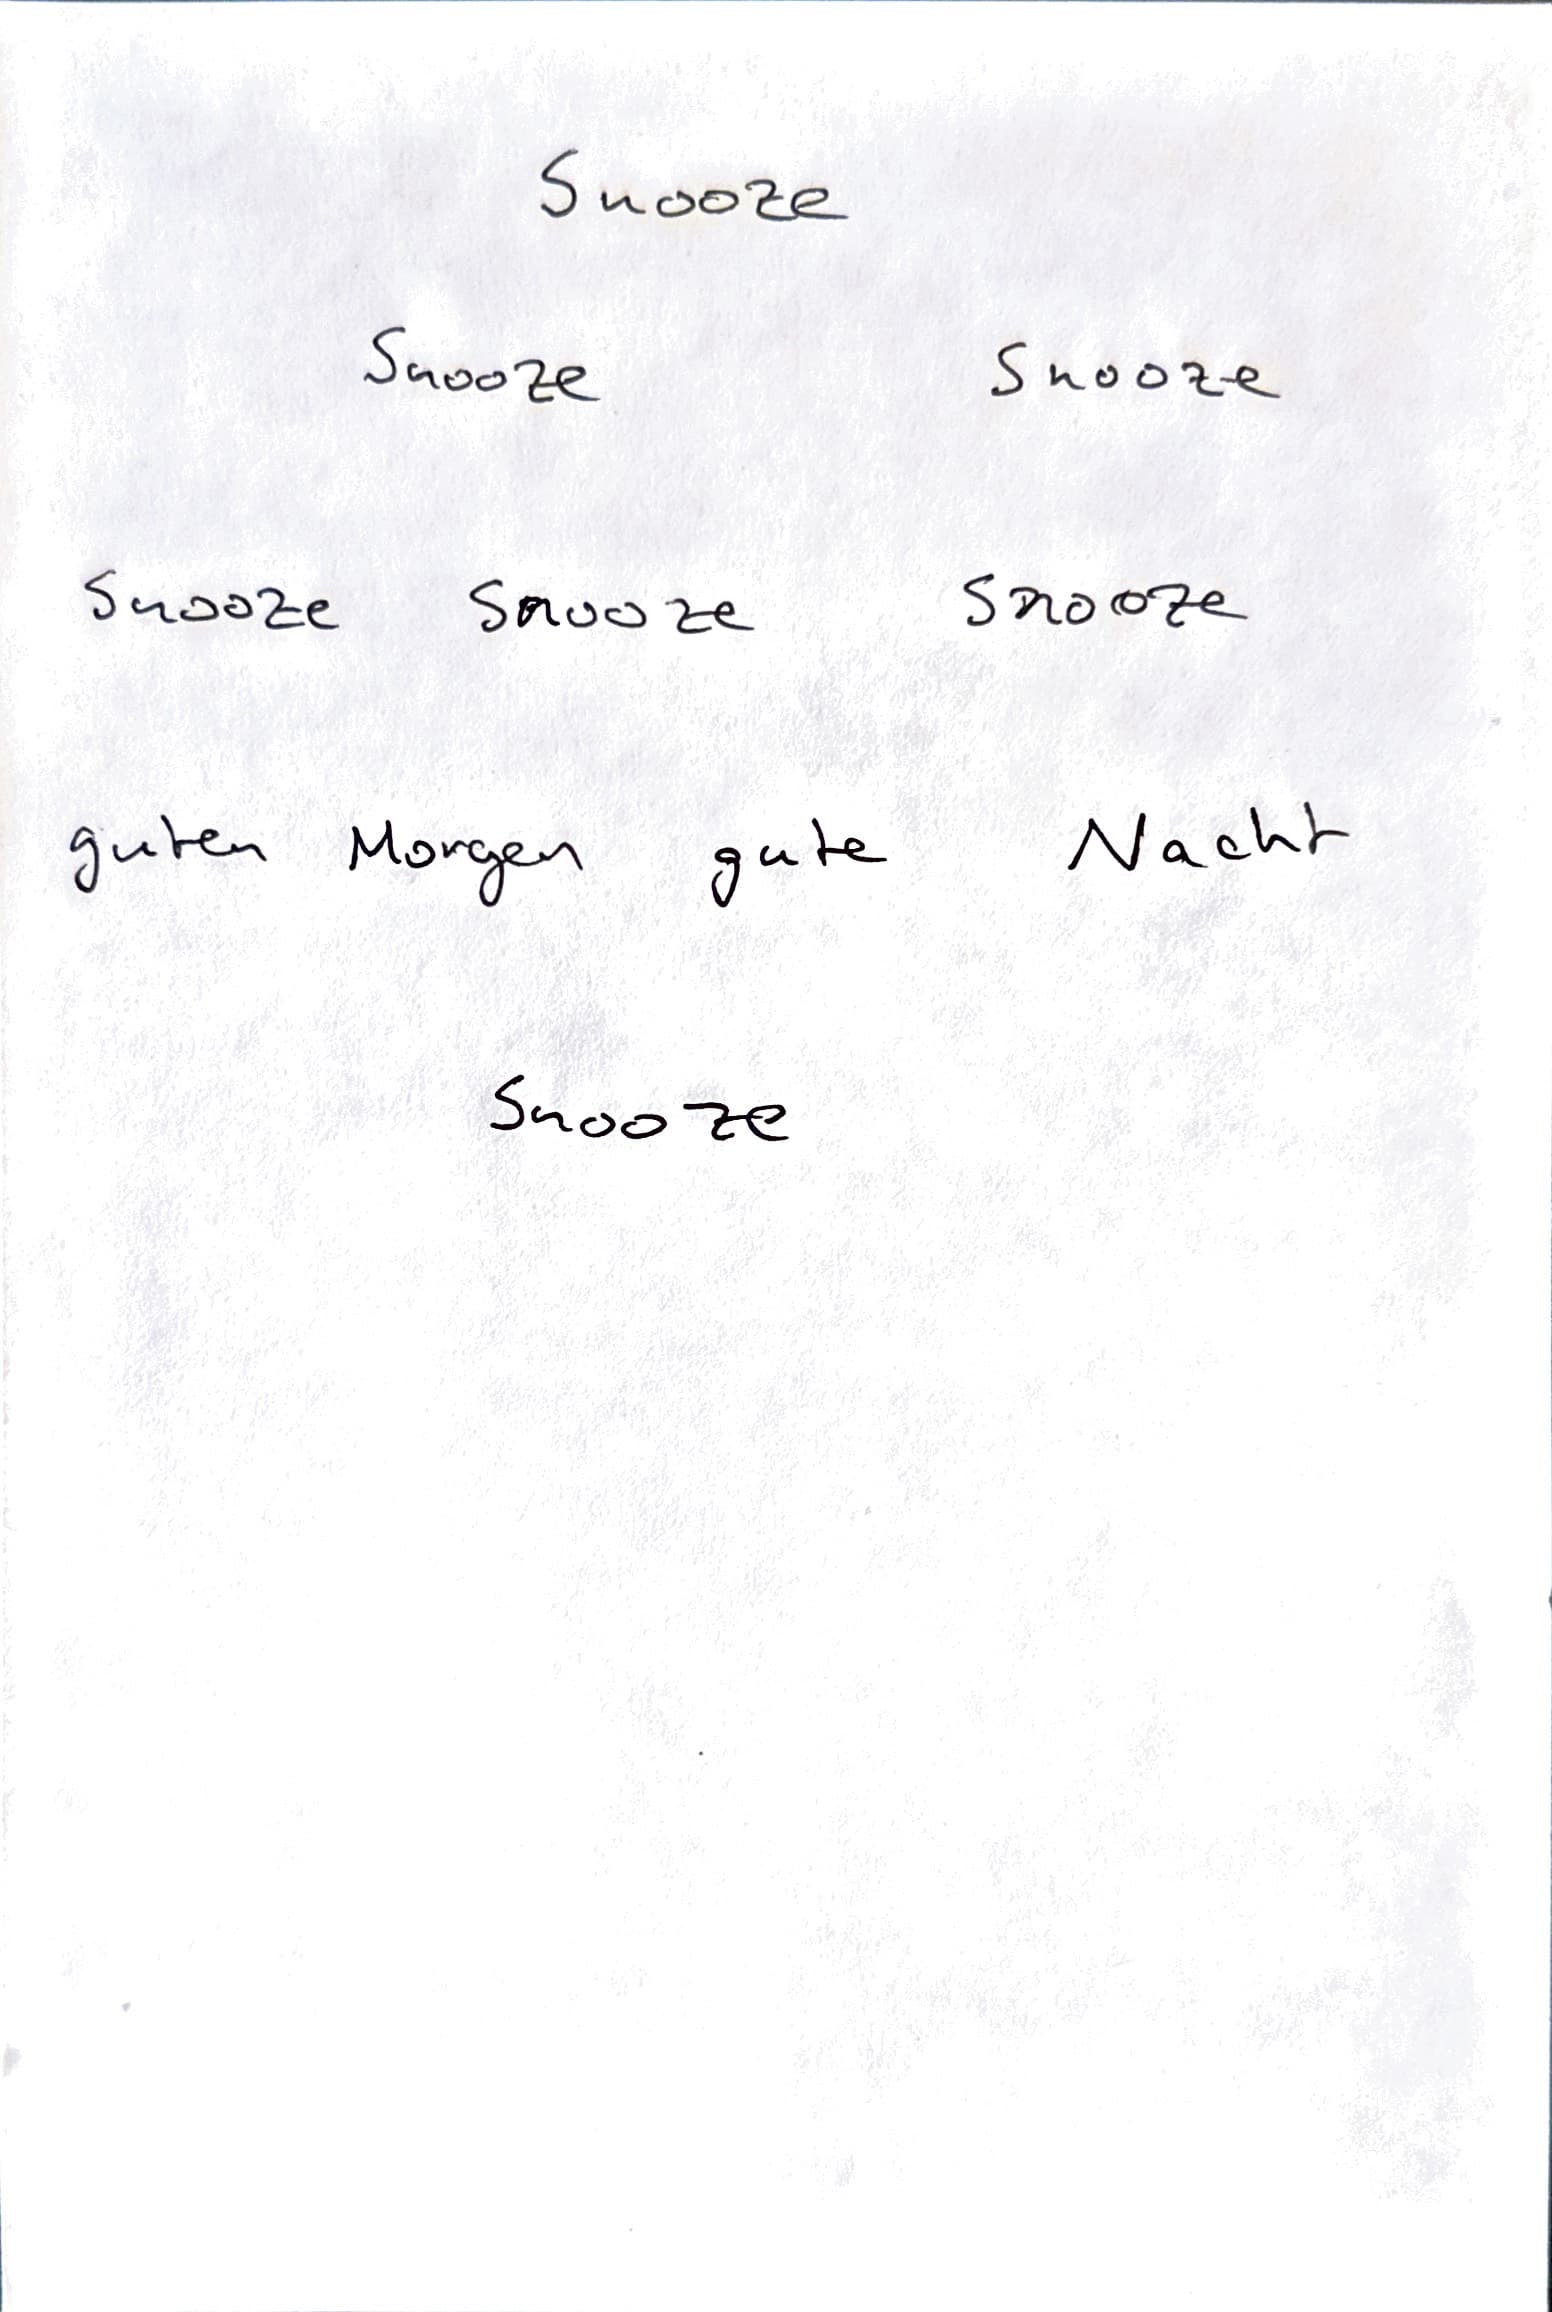 Snooze
Snooze Snooze
Snooze Snooze Snooze
guten Morgen gute Nacht
Snooze